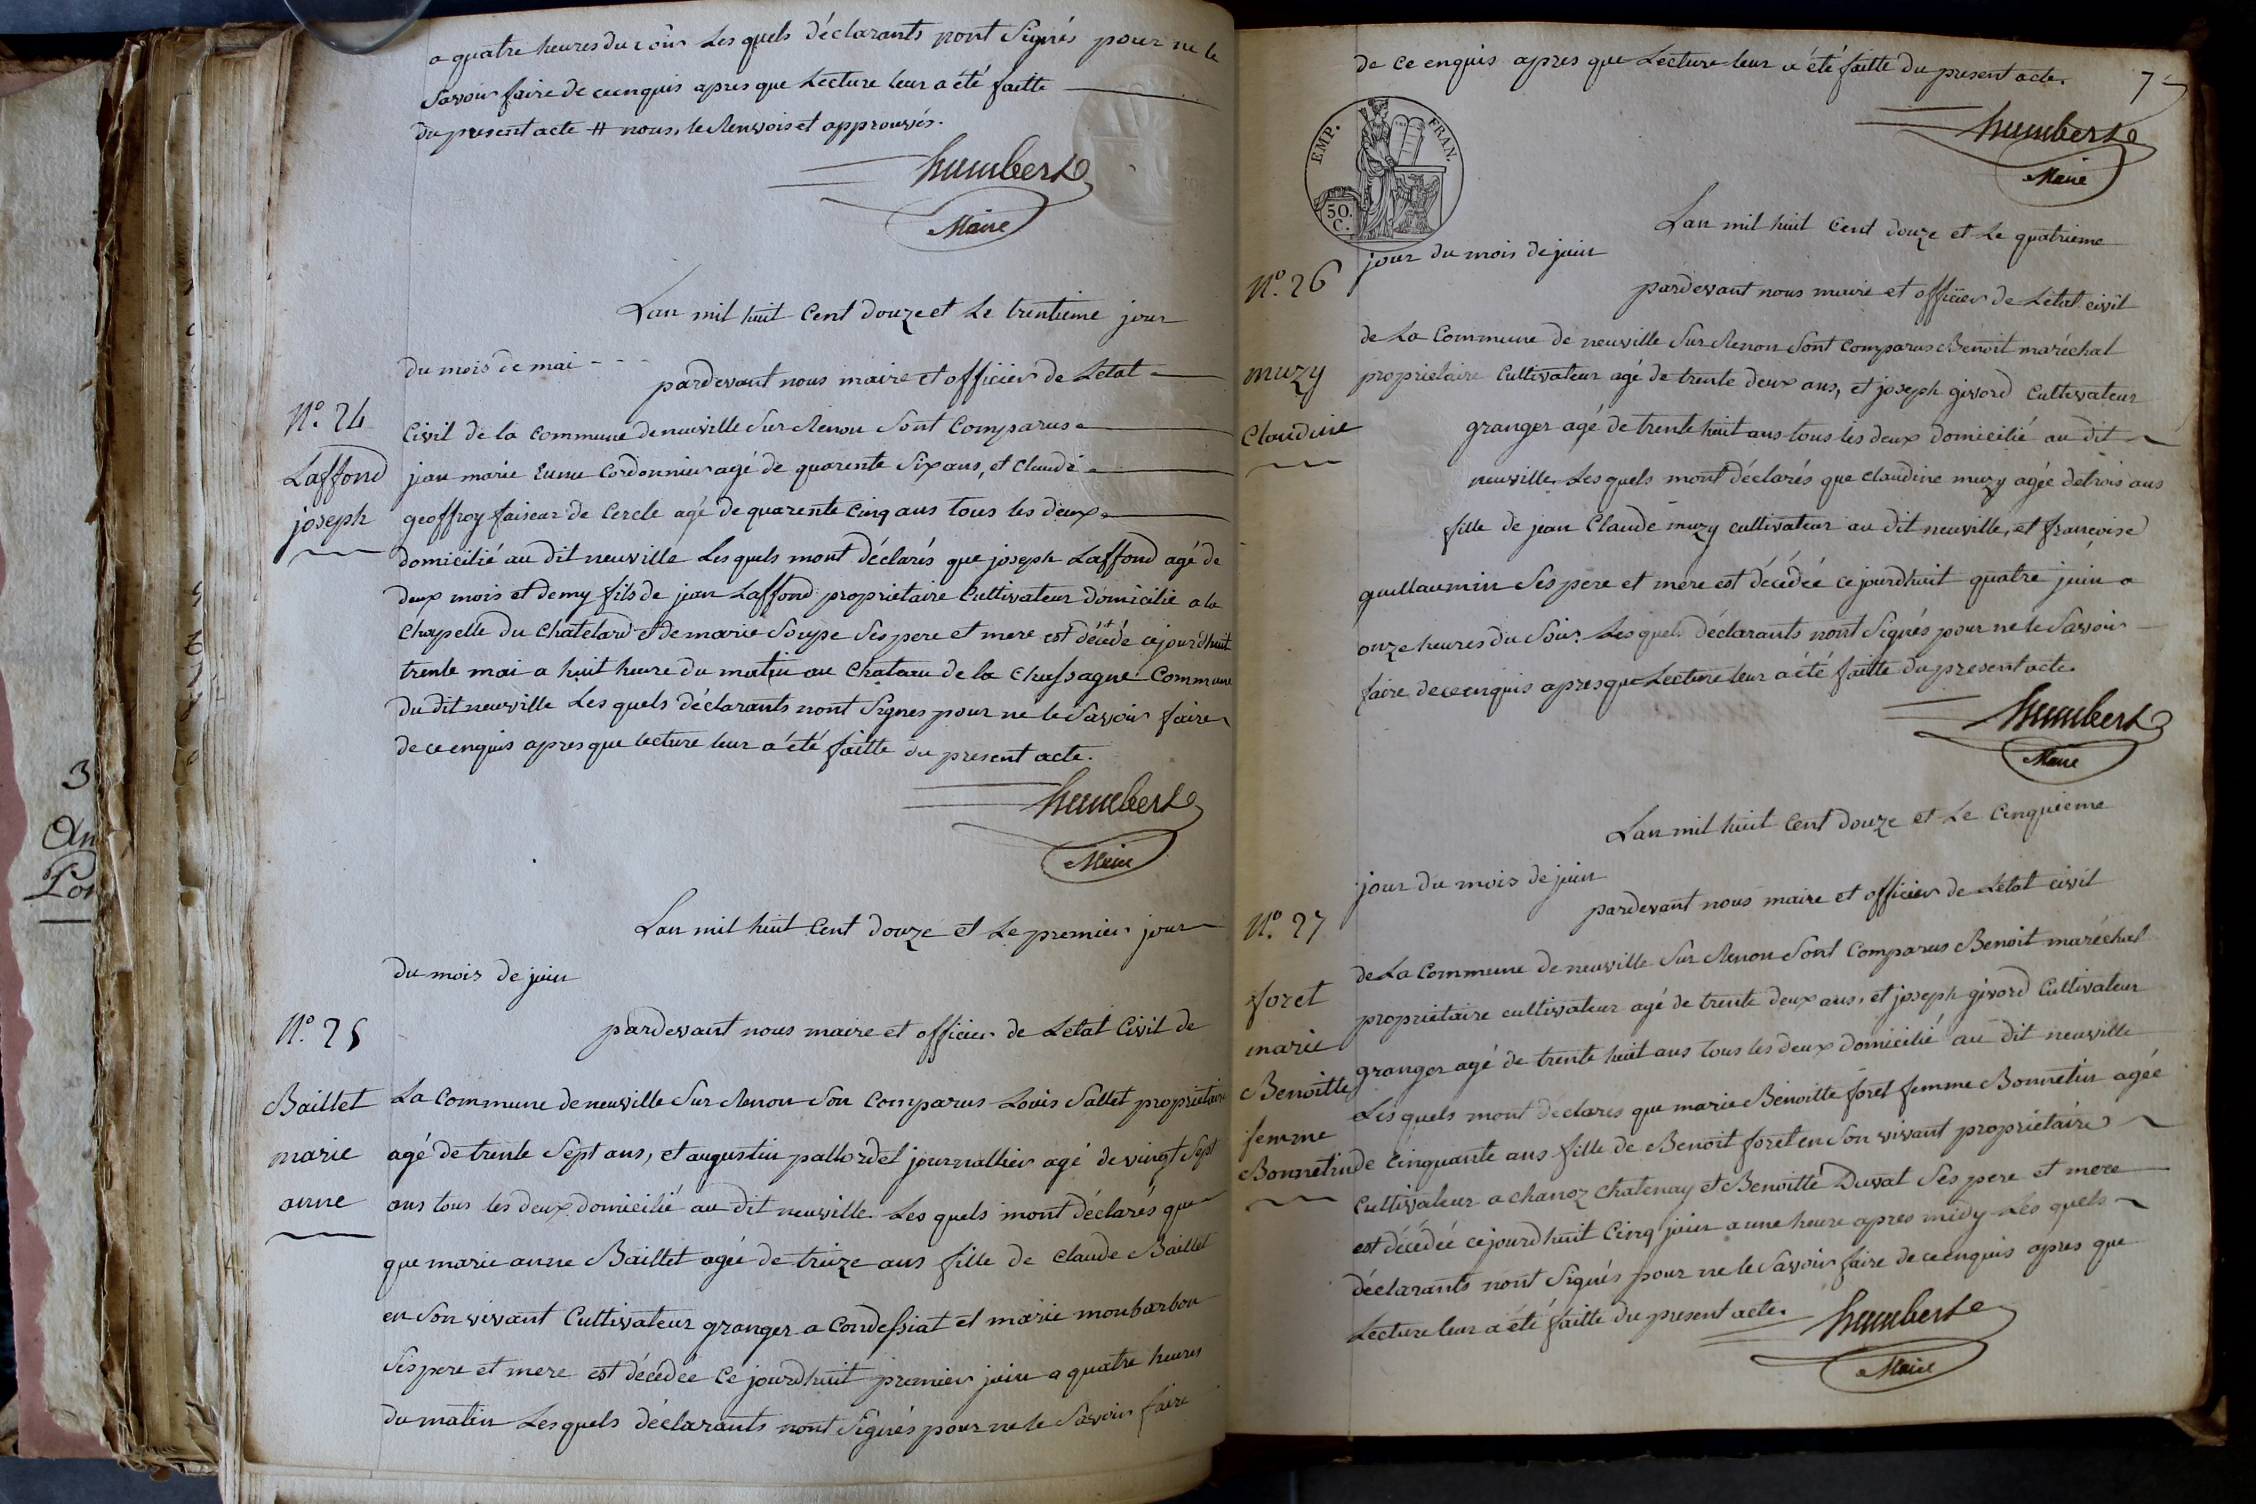 a quatre heures du soir Les quels déclarants nont Signés pour ne le
Savoir faire de ce enquis apres que Lecture leur a été faitte
du present acte # nous, le Renvois et approuvés.
humbert
Maire
Lan mil huit Cent douze et Le trentieme jour
du mois de mai - - -
pardevant nous maire et officier de Letat
N.° 24
Civil de la commune de neuville Sur Renon Sont Comparus
Laffond
jean marie Cordonnier agé de quarente Six ans, et claude
joseph
geoffroy faiseur de Cercle agé de quarente cinq ans tous les deux
domicilié au dit neuville Les quels mont déclarés que joseph Laffond agé de
deux mois et demy fils de jean Laffond proprietaire Cultivateur domicilié a la
chapelle du chatelard et de marie Soupe Ses pere et mere est décédé cejourdhuit
trente mai a huit heure du matin au chatau de la chassagne Commune
du dit neuville Les quels déclarants nont Signes pour ne le Savoir faire
de ce enquis apres que lecture leur a été faitte du present acte.
humbert
Maire
Lan mil huit Cent douze et Le premier jour
du mois de juin
N.° 25
pardevant nous maire et officier de Letat Civil de
Baillet
La Commune de neuville Sur Renon Son comparus Louis Sallet proprietaire
marie
agé de trente Sept ans, et augustin pallordet journallier agé de vingt Sept
anne
ans tous les deux domicilié au dit neuville Les quels mont déclarés que
que marie anne Baillet agée de treize ans fille de claude Baillet
en Son vivant Cultivateur granger a Condessiat et marie monbarbon
Ses pere et mere est décédée Ce jourdhuit premier juin a quatre heures
du matin Les quels déclarants nont Signés pour ne le Savoir faire
de ce enquis apres que Lecture leur a été faitte du present acte.
7
humbert
Maire
EMP. FRAN.
50. C.
Lan mil huit Cent douze et Le quatrieme
jour du mois de juin
N.° 26
pardevant nous maire et officier de Letat civil
de La Commune de neuville Sur Renon Sont comparus Benoit maréchal
muzy
proprietaire Cultivateur agé de trente deux ans, et joseph givord Cultivateur
Claudine
granger agé de trente huit ans tous les deux domicilié au dit
neuville. Les quels mont déclarés que claudine muzy agée de trois ans
fille de jean Claude muzy cultivateur au dit neuville, et francoise
guillaumin Ses pere et mere est décédeé ce jourdhuit quatre juin a
onze heures du Soir. Les quels déclarants nont Signés pour ne le Savoir
faire de ce enquis apres que Lecture leur a été faitte du present acte.
humbert
Maire
Lan mil huit Cent douze et Le Cinquieme
jour du mois de juin
N.° 27
pardevant nous maire et officier de Letat civil
de La Commune de neuville Sur Renon Sont Comparus Benoit maréchal
foret
proprietaire cultivateur agé de trente deux ans, et joseph givord Cultivateur
marie
granger agé de trente huit ans tous les deux domicilié au dit neuville
Benoitte
Les quels mont déclares que marie Benoitte foret femme Bonnetin agée
femme
Bonnetin
de cinquante ans fille de Benoit foret en Son vivant proprietaire
Cultivateur a chanoz chatenay et Benoitte Duvat Ses pere et mere
est décédeé cejourdhuit Cinq juin a une heure apres midy Les quels
déclarants nont Signés pour ne le Savoir faire de ce enquis apres que
Lecture leur a été faitte du present acte.
humbert
Maire